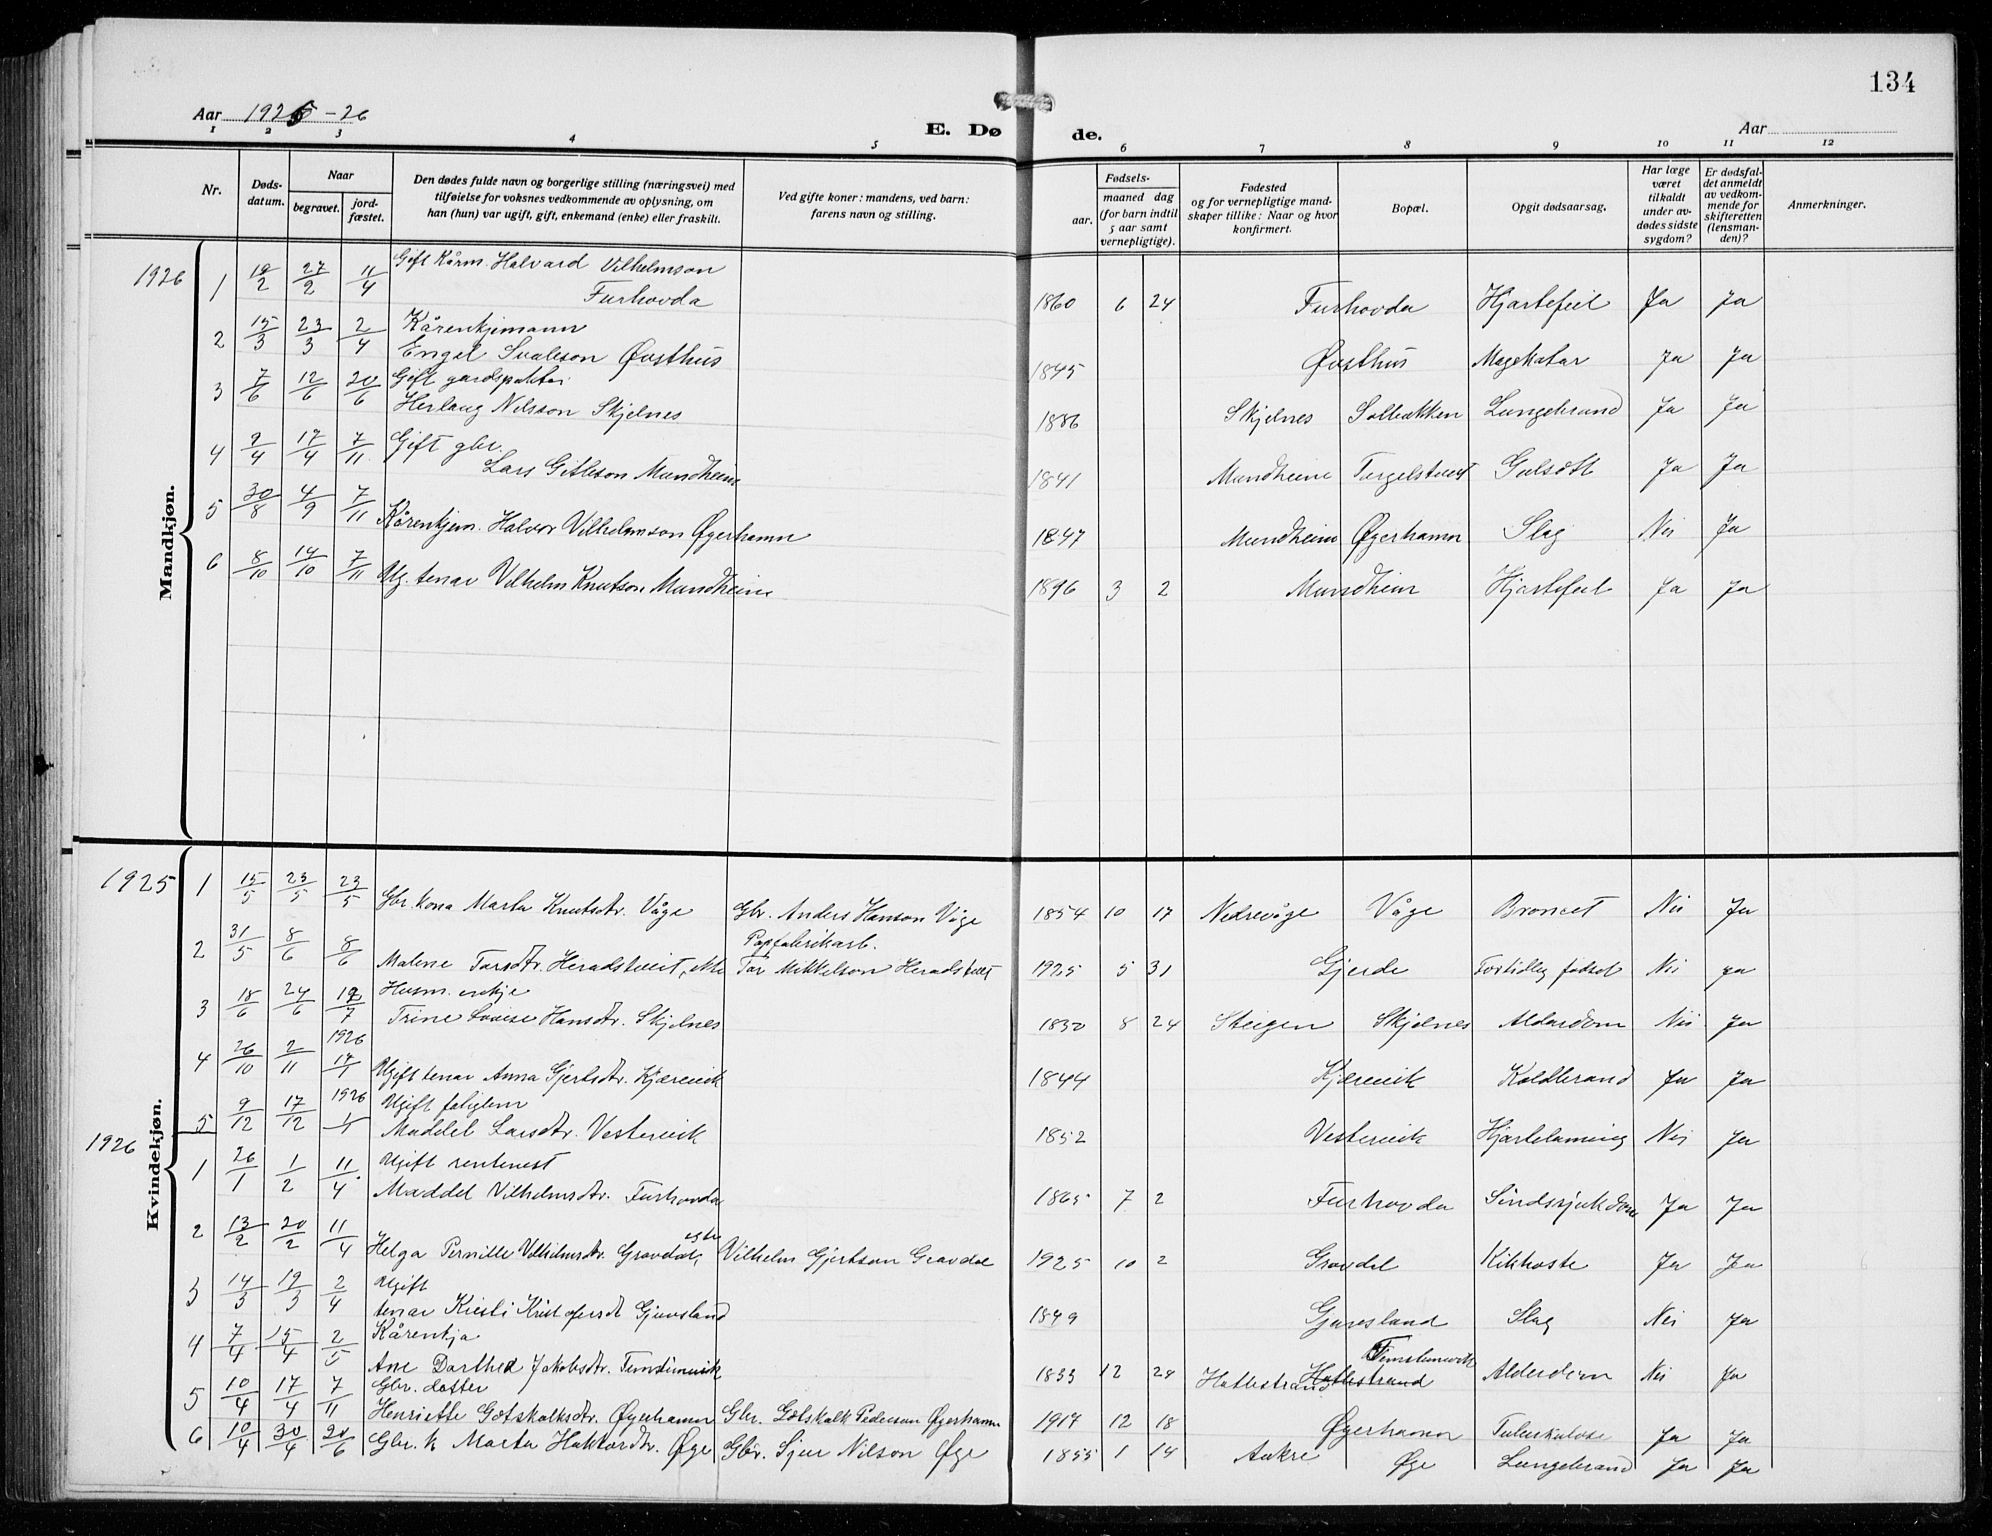 134
Aar 1925-26
E. Dø de.
Aar
1 2 3 4 5 6 7 8 9 10 11 12
Nr.
Døds-datum.
Naar
begravet.
jord-fæstet.
Den dødes fulde navn og borgerlige stilling (næringsvei) med
tilføielse for voksnes vedkommende av oplysning, om
han (hun) var ugift, gift, enkemand (enke) eller fraskilt.
Ved gifte koner: mandens, ved barn:
farens navn og stilling.
Fødsels-
aar.
maaned dag
(for barn indtil
5 aar samt
vernepligtige).
Fødested
og for vernepligtige mand-
skaper tillike: Naar og hvor
konfirmert.
Bopæl.
Opgit dødsaarsag.
Har læge
været
tilkaldt
under av-
dødes sidste
sygdom?
Er dødsfal-
det anmeldt
av vedkom-
mende for
skifteretten
(lensman-
den)?
Anmerkninger.
Mandkjøn.
1926
1 19/2 27/2 11/4 Gift Kårm. Halvard Vilhelmson
Furhovda 1860 6 24 Furhovda Hjartefeil Ja Ja
2 15/3 23/3 2/4 Kårenkjemann
Engel Svaleson Øvsthus 1845 Øvsthus Magekatar Ja Ja
3 7/6 12/6 20/6 Gift gardspaktar
Herlaug Nilsson Skjelnes 1886 Skjelnes Solbakken Lungebrand Ja Ja
4 9/4 17/4 7/11 Gift gbr.
Lars Gitleson Mundheim 1841 Mundheim Torgelstveit Gulsott Ja Ja
5 30/8 4/9 7/11 Kårenkjem. Halvor Vilhelmson Øyerhamn 1847 Mundheim Øyerhamn Slag Nei Ja
6 8/10 14/10 7/11 Ug. tenar Vilhelm Knutson Mundheim 1896 3 2 Mundheim Hjartefeil Ja Ja
Kvindekjøn.
1925
1 15/5 23/5 23/5 Gbr. kona Marta Knutsdtr. Våge Gbr. Anders Hanson Våge 1854 10 17 Nedrevåge Våge Broncet Nei Ja
2 31/5 8/6 8/6 Papfabrikarb.
Malene Torsdtr. Heradstveit, ekte Tor Mikkelson Heradstveit 1925 5 31 Gjerde Fortidleg fødsel Nei Ja
3 18/6 24/6 19/7 Husm. enkje
Trine Lovise Hansdtr. Skjelnes 1830 8 24 Steigen Skjelnes Alderdom Nei Ja
4 26/10 2/11 1926 17/1 Ugift tenar Anna Gjertsdtr. Kjærevik 1844 Kjærevik Koldbrand Ja Ja
5 9/12 17/12 1926 /1 Ugift fatiglem
Maddel Larsdtr. Vestervik 1852 Vestervik Hjartelaming Nei Ja
1926
1 26/1 1/2 11/4 Ugift rentenest
Maddel Vilhelmsdtr. Furhovda 1865 7 2 Furhovda Sindssjukdom Ja Ja
2 13/2 20/2 11/4 Helga Pernille Vilhelmsdtr. Gravdal, egte Vilhelm Gjertson Gravdal 1925 10 2 Gravdal Kikhoste Ja Ja
3 14/3 19/3 2/4 Ugift
tenar Kirsti Kristofersdt Gjuvsland 1849 Gjuvesland Slag Nei Ja
4 7/4 15/4 2/5 Kårenkja
Ane Darthea Jakobsdtr. Femstenevik 1833 12 24 Hattestrand Hattestrand Femstenevik Alderdom Nei Ja
5 10/4 17/4 7/11 Gbr. dotter
Henriette Gotskalksdtr. Øyerhamn Gbr. Gotskalk Pederson Øyerhamn 1917 12 18 Øyerhamn Tuberkulose Ja Ja
6 10/4 30/4 20/6 Gbr. k Marta Haktorsdtr. Øye Gbr. Sjur Nilson Øye 1855 1 14 Aakre Øye Lungebrand Ja Ja